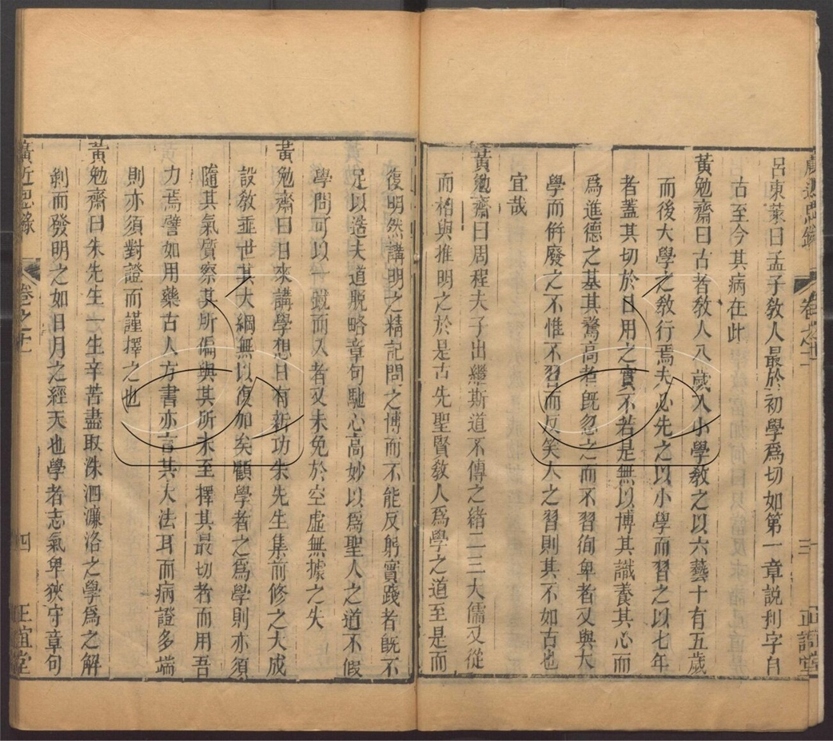 呂東萊曰孟子敎人最於初學爲切如第一章說利字自
古至今其病在此
黃勉齋曰古者敎人八歲入小學敎之以六藝十有五歲
而後大學之敎行焉夫必先之以小學而習之以七年
者蓋其切於日用之實不若是無以博其識養其心而
爲進德之基其騖高者旣忽之而不習徇卑者又與大
學而倂廢之不惟不習而反笑人之習則其不如古也
宜哉
黃勉齋曰周程夫子出繼斯道不傳之緖二三大儒又從
而相與推明之於是古先聖賢敎人爲學之道至是而
復明然講明之精記問之博而不能反躬實踐者旣不
足以造夫道脫略章句馳心高妙以爲聖人之道不假
學問可以一蹴而入者又未免於空虛無據之失
黃勉齋曰日來講學想日有新功朱先生集前修之大成
設敎並世其大綱無以復加矣顧學者之爲學則亦須
隨其氣質察其所偏與其所未至擇其最切者而用吾
力焉譬如用藥古人方書亦言其大法耳而病證多端
則亦須對證而謹擇之也
黃勉齋曰朱先生一生辛苦盡取洙泗濂洛之學爲之解
剝而發明之如日月之經天也學者志氣卑狹守章句
廣近思錄
卷之十一
四
正誼堂